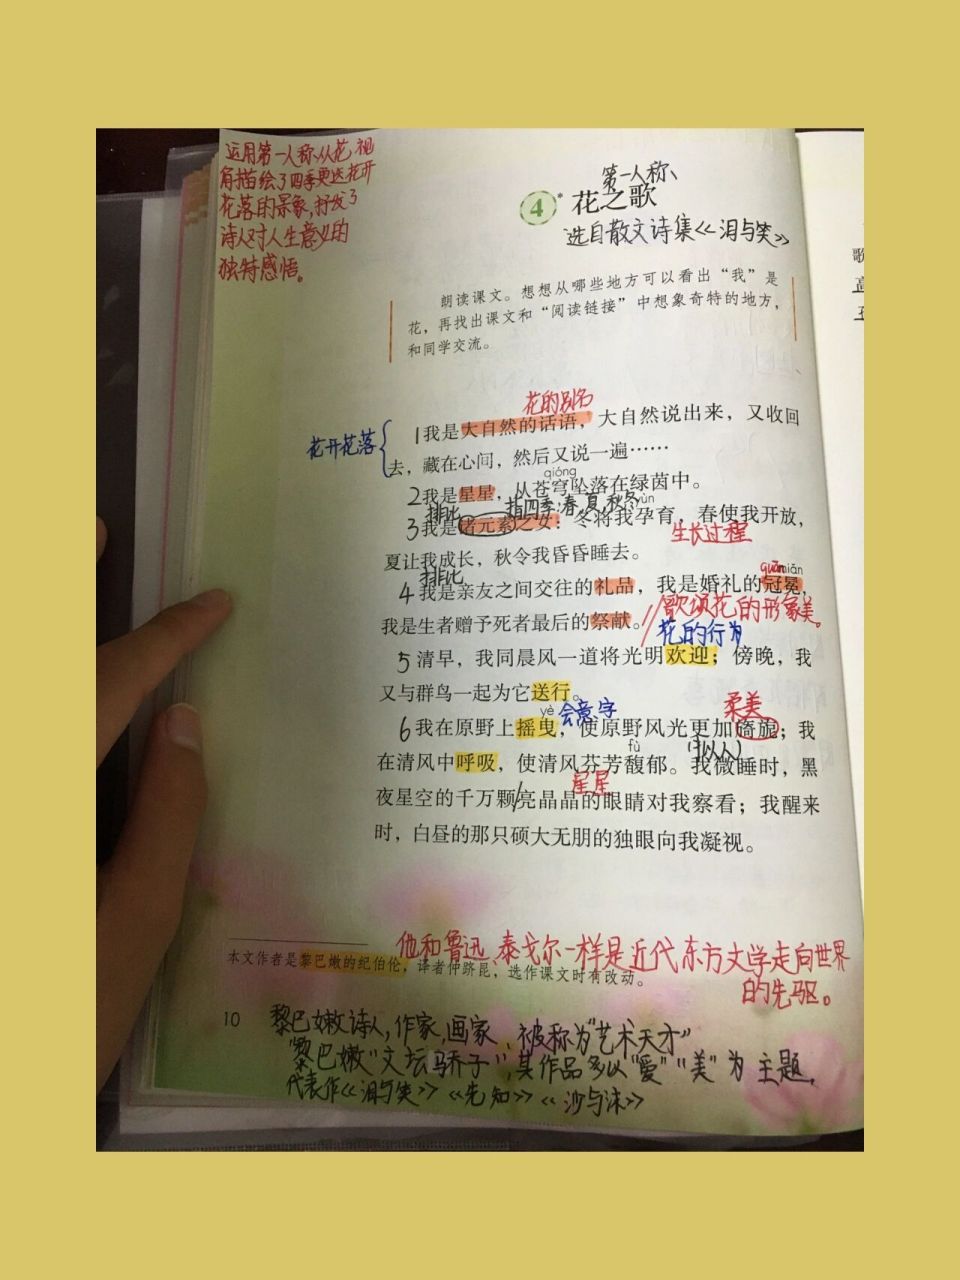 运用第一人称,从花视
角描绘了四季更迭花开
花落的景象,抒发了
诗人对人生意义的
独特感悟。
第一人称、
4* 花之歌
选自散文诗集《泪与笑》
朗读课文。想想从哪些地方可以看出“我”是
花,再找出课文和“阅读链接”中想象奇特的地方,
和同学交流。
花的别名
1我是大自然的话语,大自然说出来,又收回
花开花落
去,藏在心间,然后又说一遍……
qióng
2我是星星,从苍穹坠落在绿茵中。
排比 指四季:春,夏,秋冬 yùn
3我是诸元素之女:冬将我孕育,春使我开放,
生长过程
夏让我成长,秋令我昏昏睡去。
排比
guān miǎn
4我是亲友之间交往的礼品,我是婚礼的冠冕,
歌颂花的形象美。
我是生者赠予死者最后的祭献。
花的行为
5清早,我同晨风一道将光明欢迎;傍晚,我
又与群鸟一起为它送行。
yè 会意字 柔美
6我在原野上摇曳,使原野风光更加旖旎;我
fù (拟人)
在清风中呼吸,使清风芬芳馥郁。我微睡时,黑
星星
夜星空的千万颗亮晶晶的眼睛对我察看;我醒来
时,白昼的那只硕大无朋的独眼向我凝视。
他和鲁迅、泰戈尔一样是近代东方文学走向世界
的先驱。
本文作者是黎巴嫩的纪伯伦,译者仲跻昆,选作课文时有改动。
10
黎巴嫩诗人,作家,画家、被称为“艺术天才”
“黎巴嫩”文坛骄子”,其作品多以“爱”“美”为主题,
代表作《泪与笑》《先知》《沙与沫》
歌
高